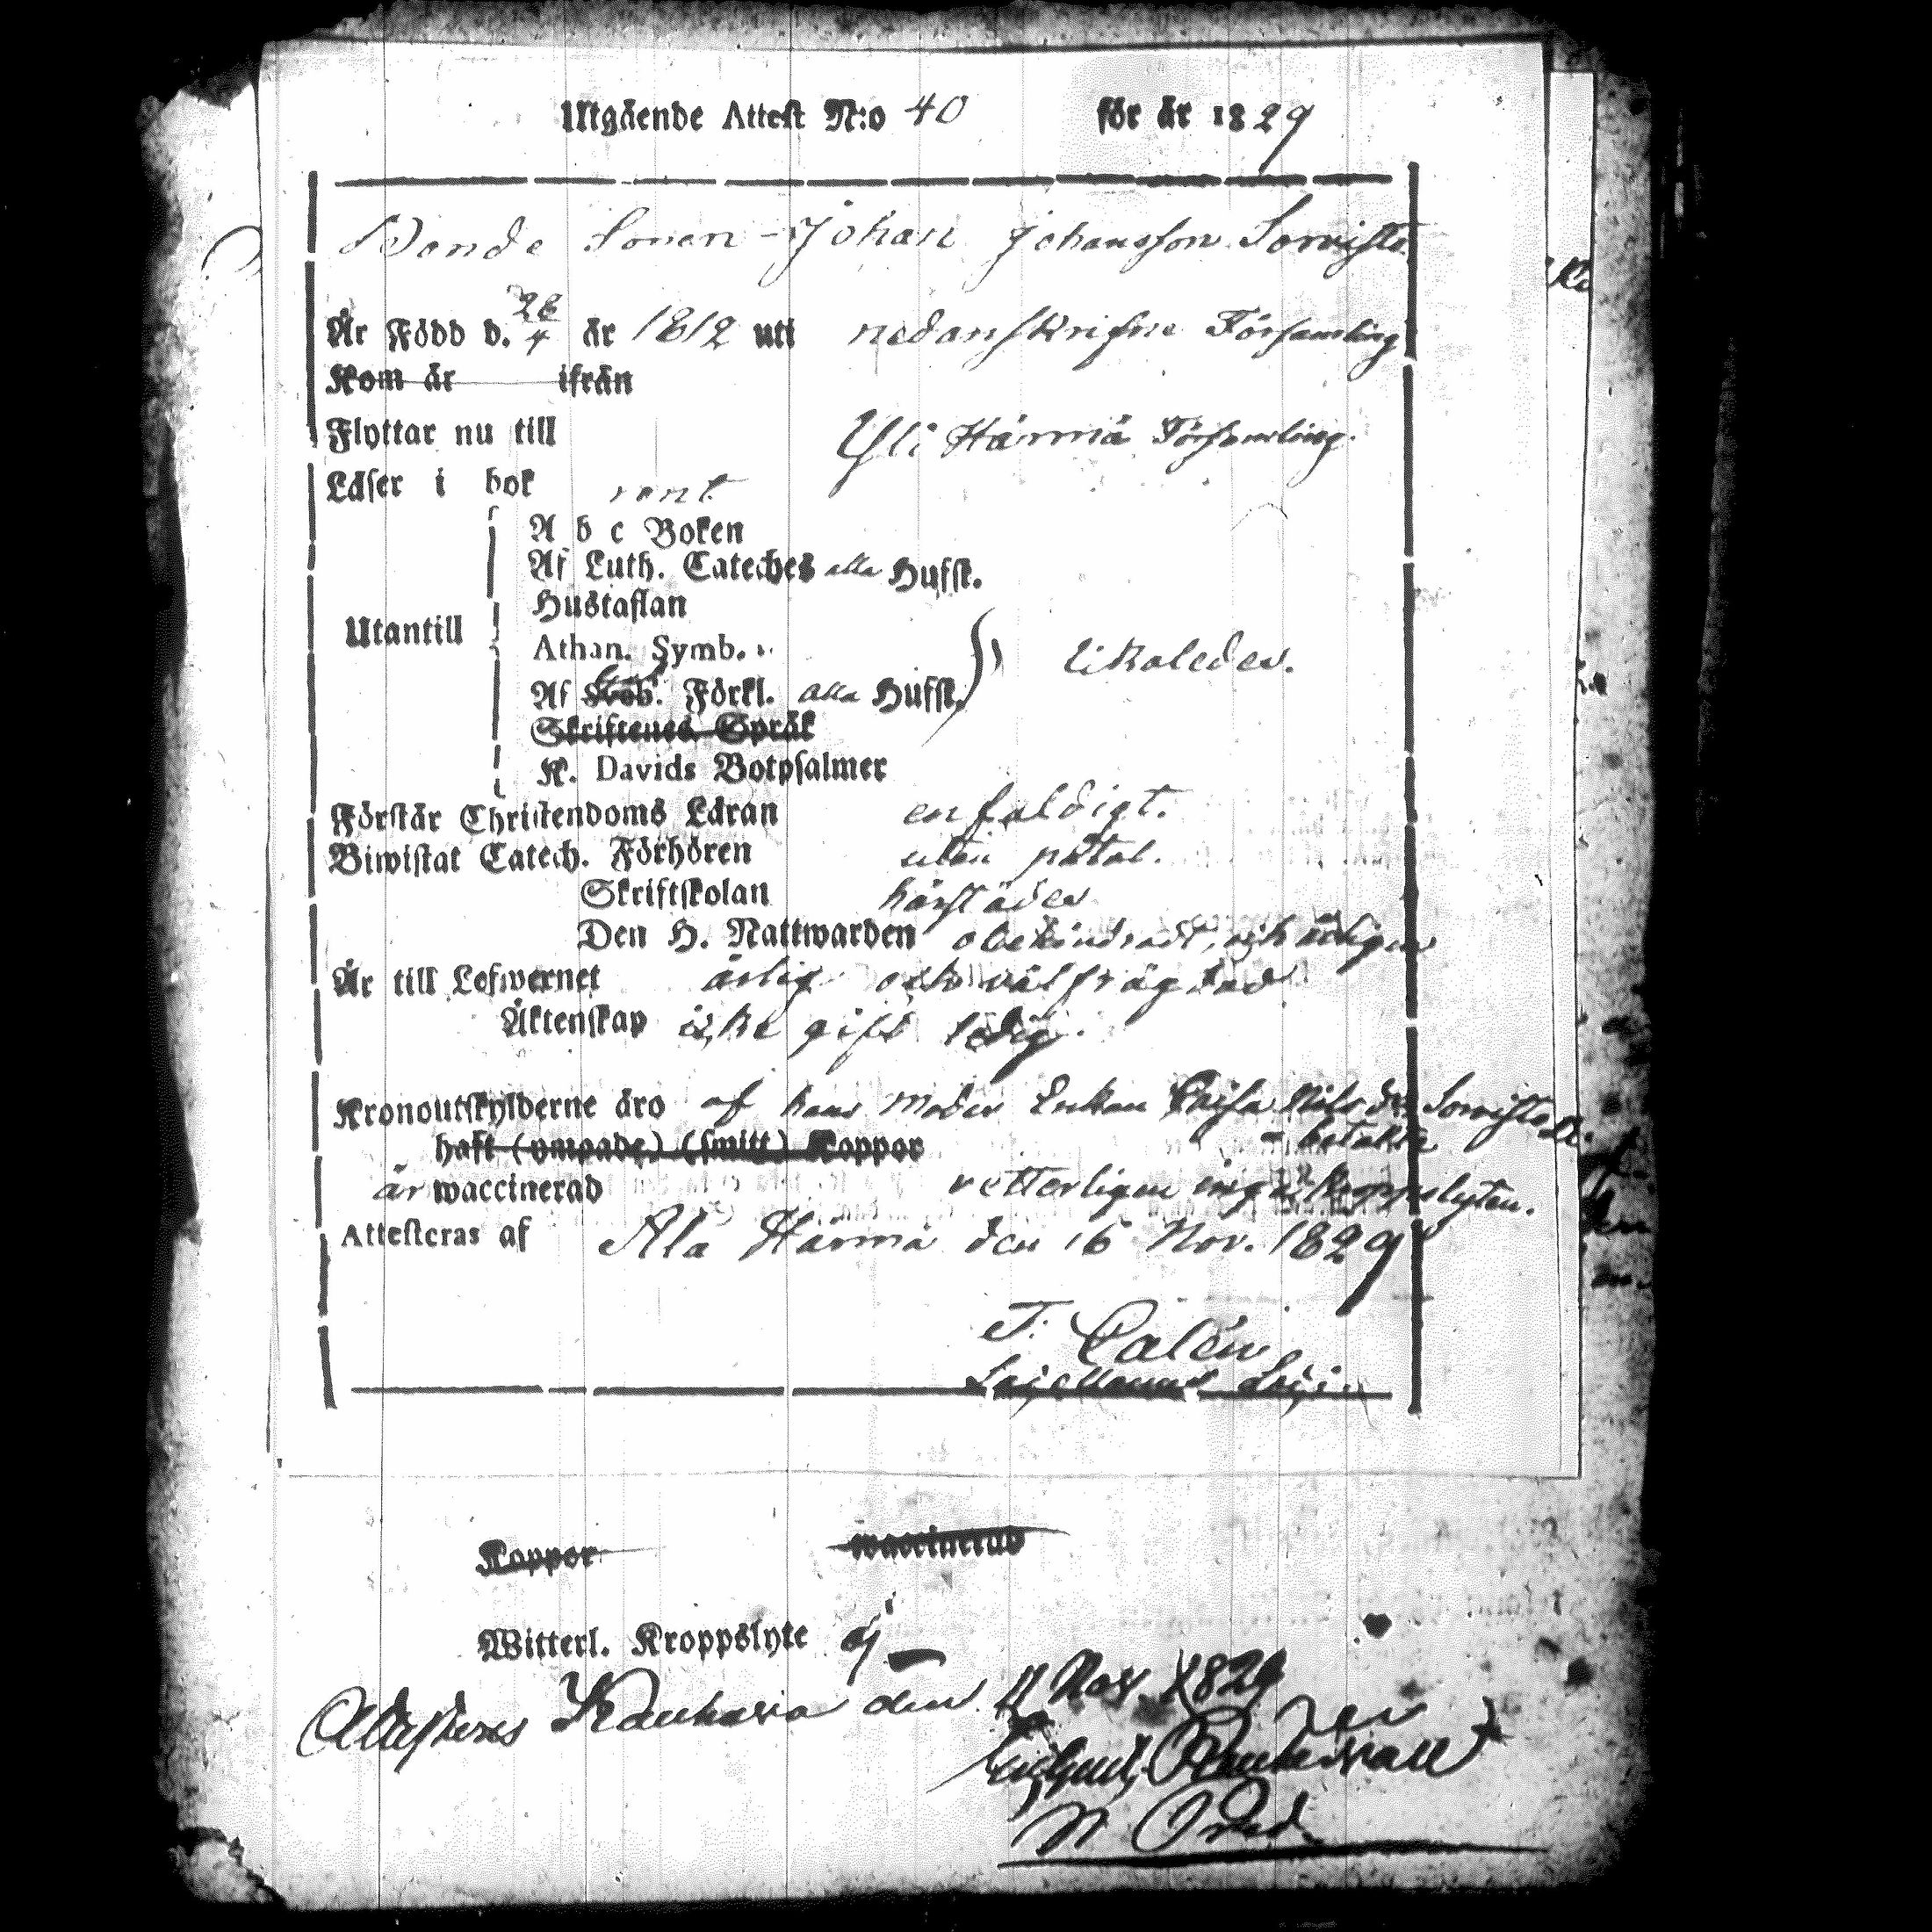 Utgående Attest N:o 40 för år 1829
Bonde Sonen Johan Johansson Sorvisto
Är Född d. 28/4 år 1812 uti nedanskrifne Församling
Kom år ifrån
Flyttar nu till Yli Härmä Församling.
Läser i bok rent
A b c Boken
Af Luth. Cateches alla Hufst.
Hustaflan
Utantill
Athan. Symb.
likaledes.
Af Förkl. alla Hufst.
Skriftenes Språk
K. Davids Botpsalmer
Förstår Christendoms Läran enfaldigt.
Biwistat Catech. Förhören utan påtal.
Skriftskolan härstädes
Den H. Nattwarden obehindradt, och
Är till Lefwernet ärlig och välfrägdad
Äktenskap icke gift ledig.
Kronoutskylderne äro af hans Moder Enkan Caisa Nils dr Sorvisto
betalte
haft (ympade) (smitt) Koppor
är waccinerad vetterligen inga Kroppslyten.
Attesteras af Ala Härmä den 16 Nov. 1829
F. Calén
Koppor waccinerad
Witterl. Kroppslyte ej
Attesteras Kauhava den 11 Nov. 1829